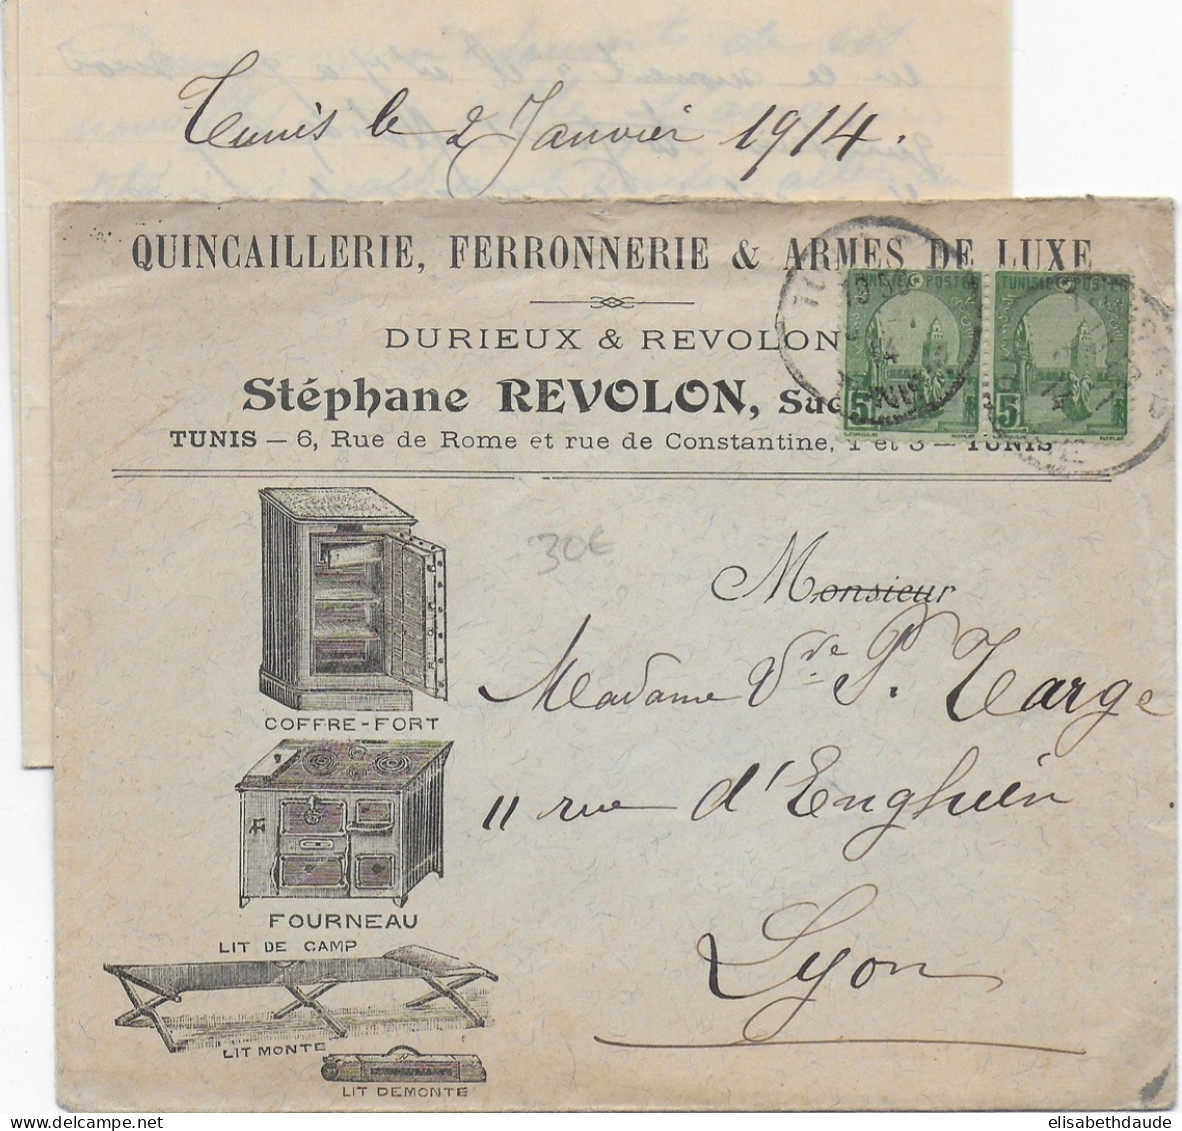 Tunis le 2 Janvier 1914.
QUINCAILLERIE, FERRONNERIE & ARMES DE LUXE
DURIEUX & REVOLON
Stéphane REVOLON, Suc
TUNIS — 6, Rue de Rome et rue de Constantine, 1 et 3 — TUNIS
TUNISIE POSTES
5
TUNISIE POSTES
5
30€
COFFRE-FORT
FOURNEAU
LIT DE CAMP
LIT MONTE
LIT DEMONTE
Monsieur
Madame Vve P. Targe
11 rue d'Enghien
Lyon
elisabethdaude